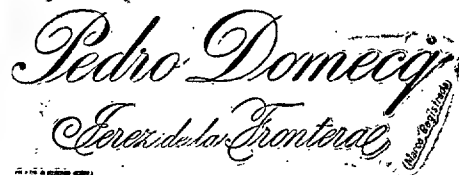 Pedro Domecq
Jerez de la Frontera
(Marca Registrada)